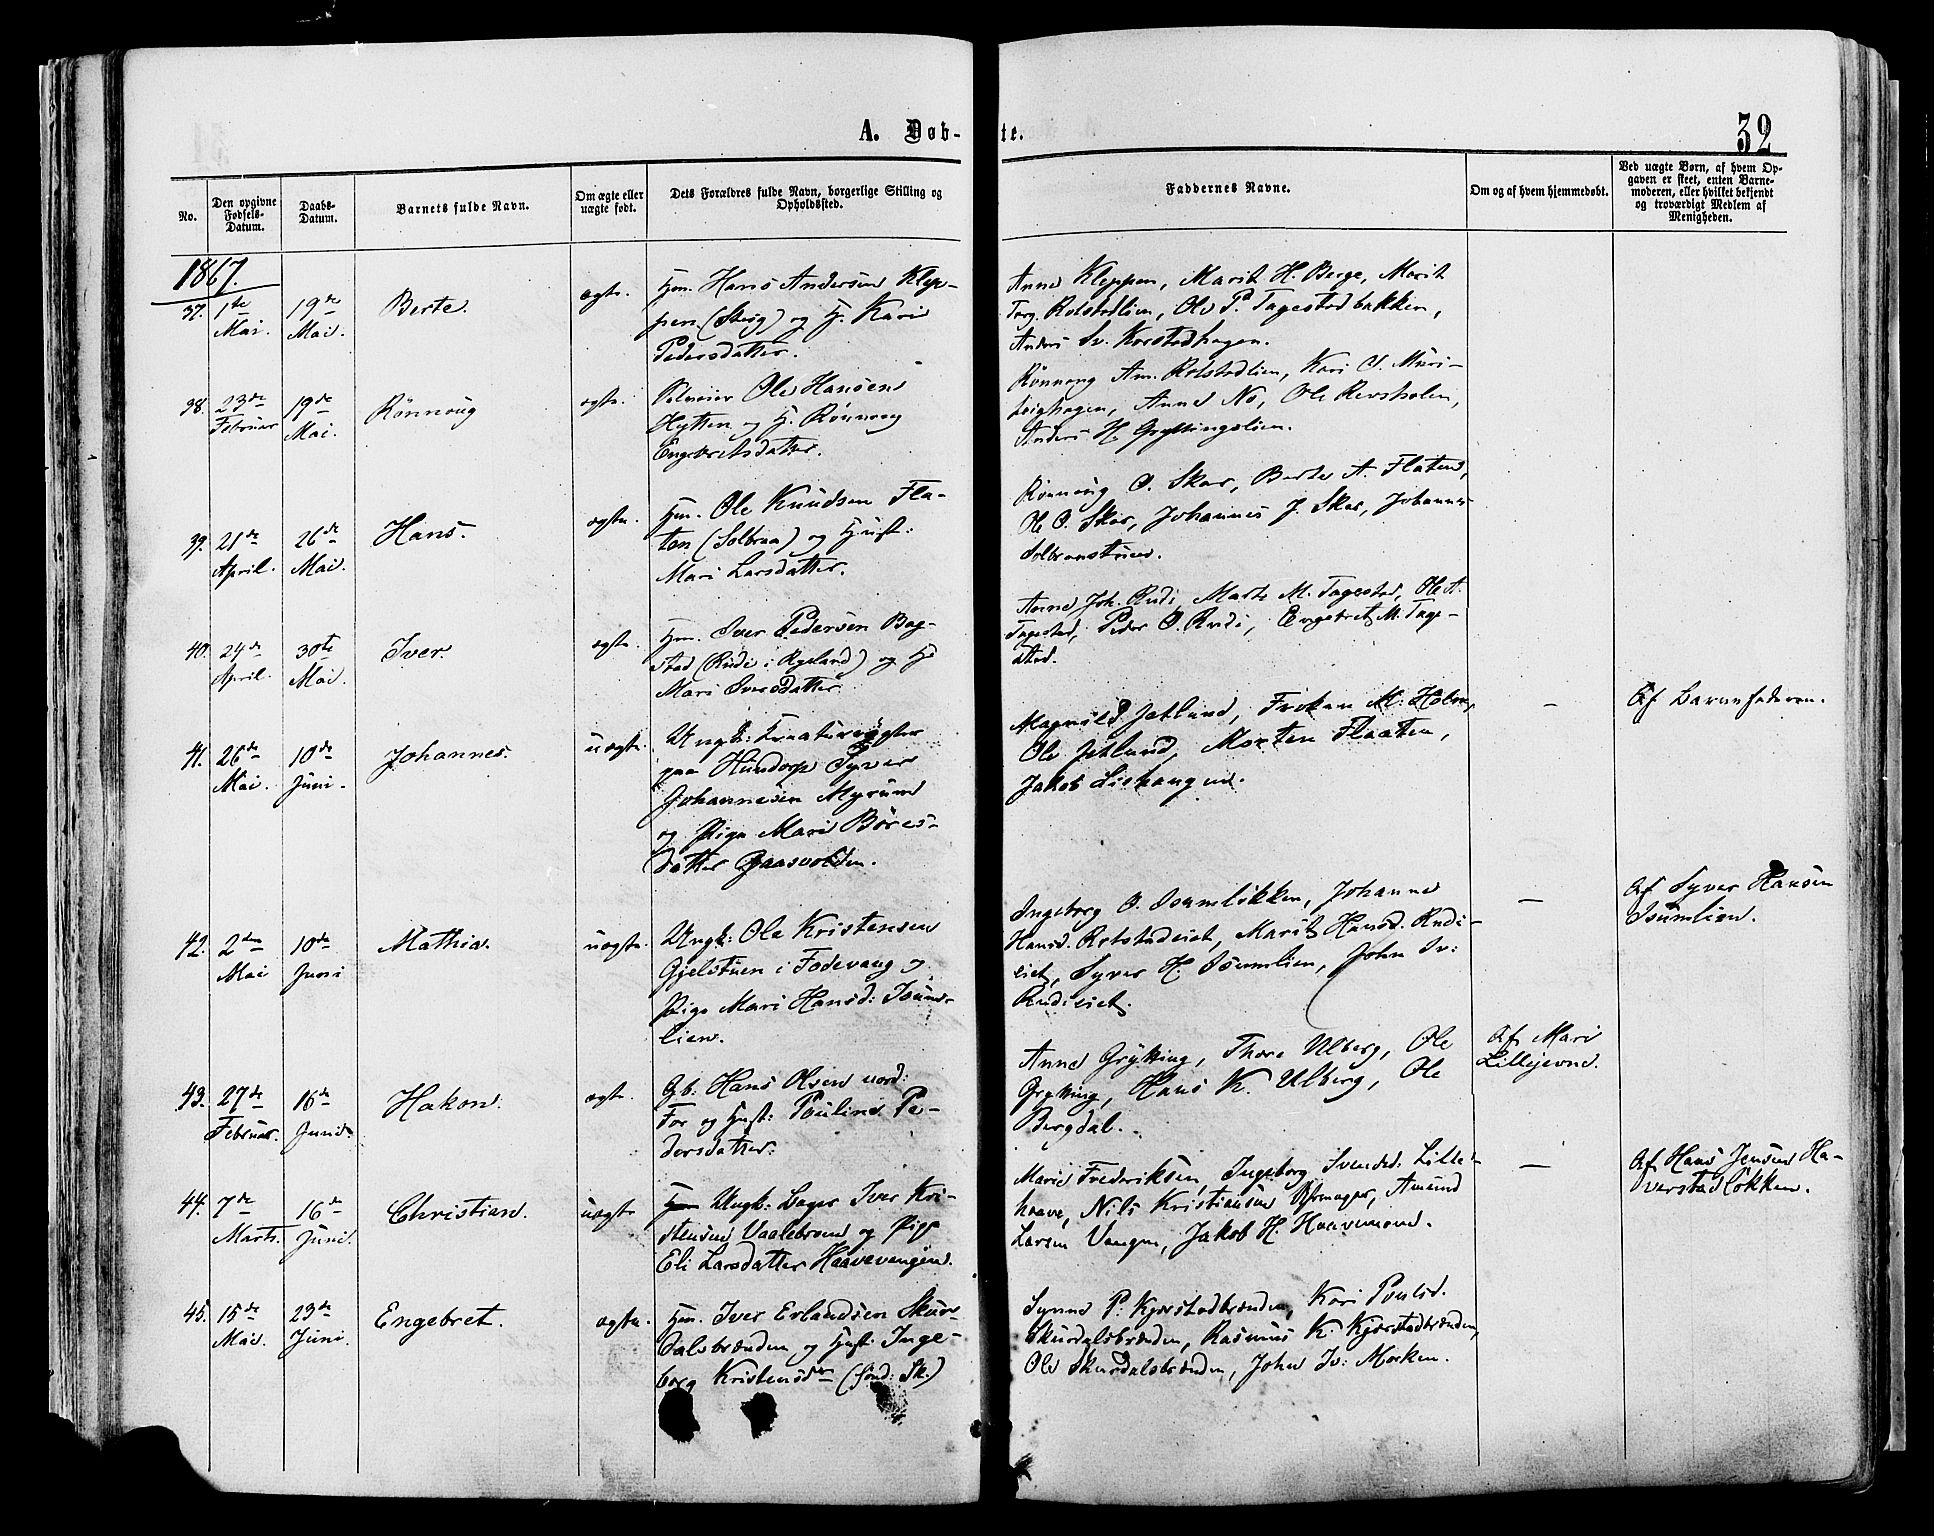 A. Døb-
te.
32
No.
Den opgivne Fødsels-Datum.
Daabs-Datum.
Barnets fulde Navn.
Om ægte eller uægte født.
Dets Forældres fulde Navn, borgerlige Stilling og Opholdssted.
Faddernes Navne.
Om og af hvem hjemmedøbt.
Ved uægte Børn, af hvem Opgaven er skeet, enten Barnemoderen, eller hvilket bekjendt og troværdigt Medlem af Menigheden.
1867.
37.
1ste Mai.
19de Mai.
Berte.
ægte.
Hm. Hans Andersen Klep-
pen (Berg) og H. Kari
Pedersdatter.
Anne Kleppen, Marit H. Berge, Marit
Torg. Rolstadlien, Ole P. Tagestadbakken,
Anders Sv. Korstadhagen.
38.
23de Februar
19de Mai.
Rönnoug
ægte.
Ole Hansen
Hytten og H. Rönnoug
Engebretsdatter.
Rönnoug Am. Rolstadlien, Kari O. Muri-
Anne No, Ole Revsholen,
Anders H. Gryttingslien.
39.
21de April.
26de Mai.
Hans.
ægte.
Hm. Ole Knudsen Fla-
ten (Solbraa) og Hust:
Mari Larsdatter.
Rönnoug O. Skar, Berte A. Flaten,
Ole O. Skar, Johannes J. Skar, Johannes
Solbraastuen.
40.
24de April.
30te Mai.
Iver.
ægte.
Hm. Iver Pedersen Bag-
stad (Rudi i Rysland) og H.
Mari Iversdatter
Anne Joh. Rudi, Marte M. Tagestad, Ole A.
Tagestad, Peder O. Rudi, Engebret M. Tage-
stad.
41.
26de Mai.
10de Juni.
Johannes.
uægte.
Ungk: Kreaturrögter
paa Hundorp Syver
Johannesen Myrum
og Pige Mari Böres-
datter Gaasvolden.
Magnild Jetlund, Frøken M. Holm,
Ole Jetlund, Morten Flaaten,
Jakob Lishaugen.
–
Af Barnefaderen.
42.
2den Mai
10de Juni
Mathia.
uægte.
Ungk: Ole Kristensen
Gjelstuen i Fodevang og
Pige Mari Hansd: Isum-
lien.
Ingeborg O. Isumlökken, Johanne
Hansd. Rolstadeiet, Marit Hansd. Rudi-
eiet, Syver H. Isumlien, John Iv:
Rudieiet.
–
Af Syver Hansen
Isumlien.
43.
27de Februar.
16de Juni.
Hakon.
ægte.
Gb: Hans Olsen nord:
For og Hust: Pouline Pe-
dersdatter.
Anne Grytting, Thore Ulberg, Ole
Grytting, Hans K. Ulberg, Ole
Bergdal.
Af Mari
Lillejevne.
44.
7de Marts.
16de Juni.
Christian.
uægte
Ungk: Bager Iver Kri-
stensen Vaalebroen og Pige
Eli Larsdatter Haavevangen.
Marie Frederiksen, Ingeborg Svensd. Lille-
haave, Nils Kristiansen, Amund
Larsen Vangen, Jakob H. Haavemoen.
–
Af Hans Jensen Ha-
verstadlökken.
45.
15de Mai.
23de Juni.
Engebret.
ægte.
Hm. Iver Erlandsen Skur-
dalsbrænden og Hust: Inge-
borg Kristensdtr (född: Sk.)
Synne P. Kjorstadbrænden, Kari Poulsd.
Skurdalsbrænden, Rasmus K. Kjorstadbrænden,
Ole Skurdalsbrænden, John Iv: Moeken.